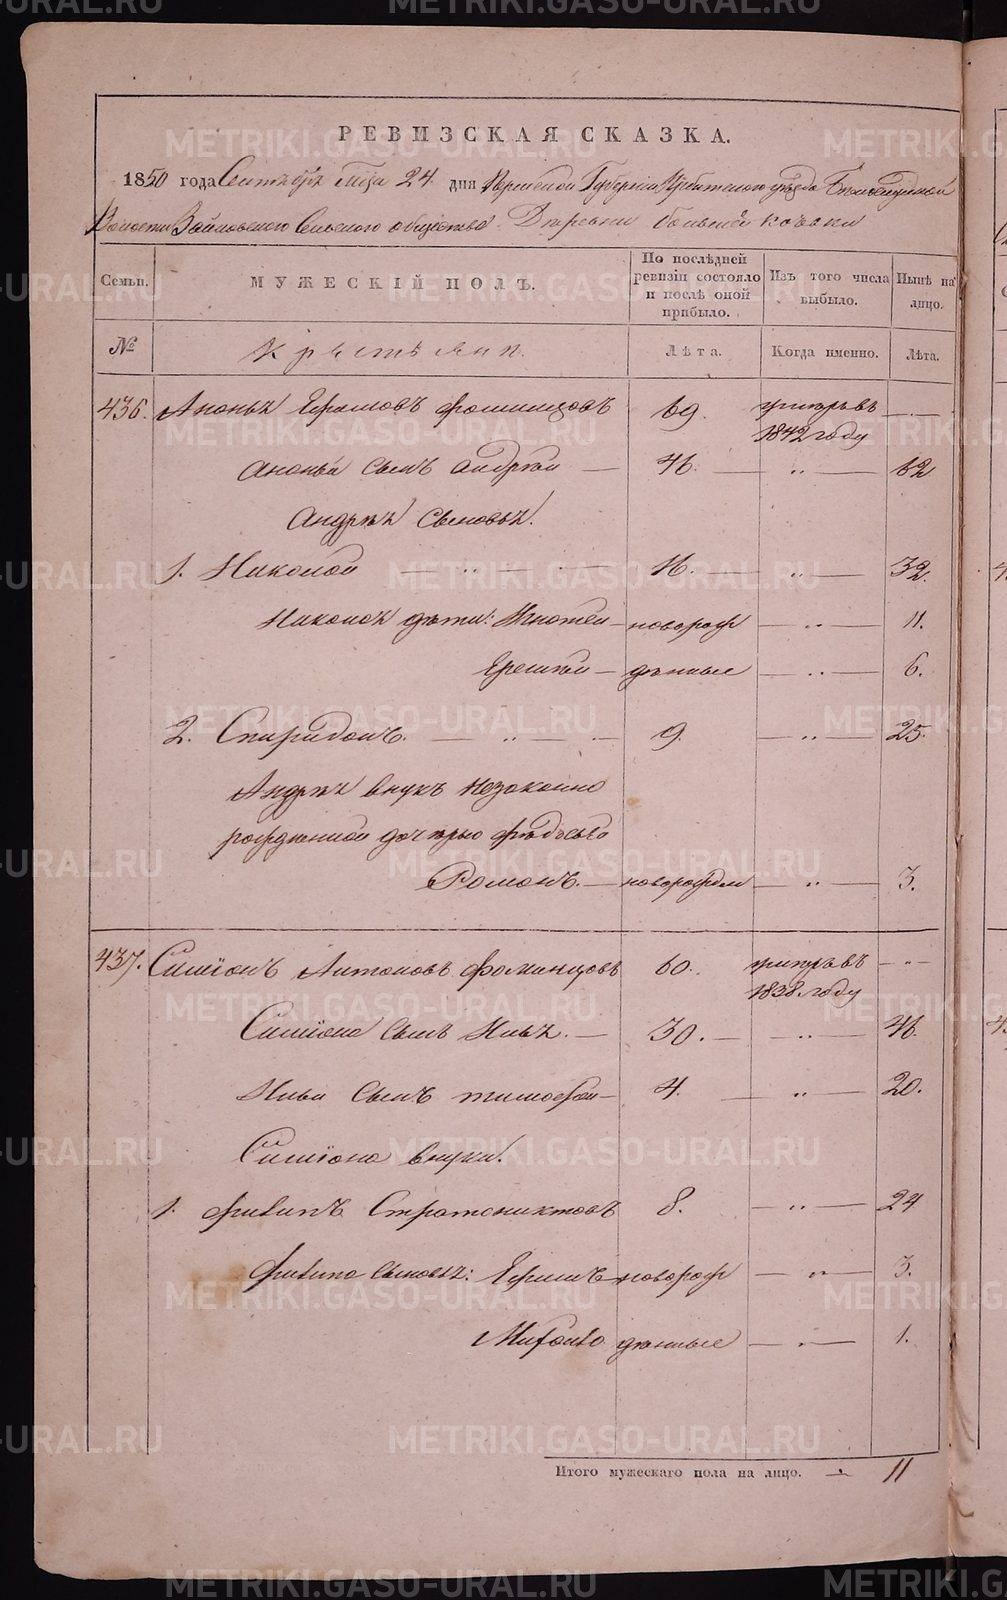 РЕВИЗСКАЯ СКАЗКА.
1850 года Сентября м-ца 24 дня Пермской Губернии Ирбитского уезда Белослудской
Волости Зайковского Сельского общества Деревни большей кочевки
Семьи. МУЖЕСКІЙ ПОЛЪ. По послѣдней ревизіи состояло и послѣ оной прибыло. Изъ того числа выбыло. Нынѣ на лицо.
№ Крестьяне. Лѣта. Когда именно. Лѣта.
436. Ананья Ефимовъ Фоминцовъ 69. умеръ въ 1842 году
Ананьи сынъ Андрей — 46. — „ — 62
Андрея сыновья.
1. Николай — „ — 16. — „ — 32.
Николая дѣти: Игнатей — новорож — „ — 11.
Еремѣй — денные — „ — 6.
2. Спиридонъ. — „ — 9. — „ — 25.
Андрея внукъ незаконно
рожденной дочерью Федосьей
Романъ. — новорожден — „ — 3.
437. Симіонъ Антоновъ Фоминцовъ 60. умеръ въ 1838 году — „ —
Симіона сынъ Илья. — 30. — „ — 46.
Ильи сынъ Тимофей — 4. — „ — 20.
Симіона внуки.
1. Филипъ Стратониковъ 8. — „ — 24
Филипа сыновья: Ефимъ новорож — „ — 3.
Михайло денные — „ — 1.
Итого мужескаго пола на лицо. — 11
METRIKI.GASO-URAL.RU